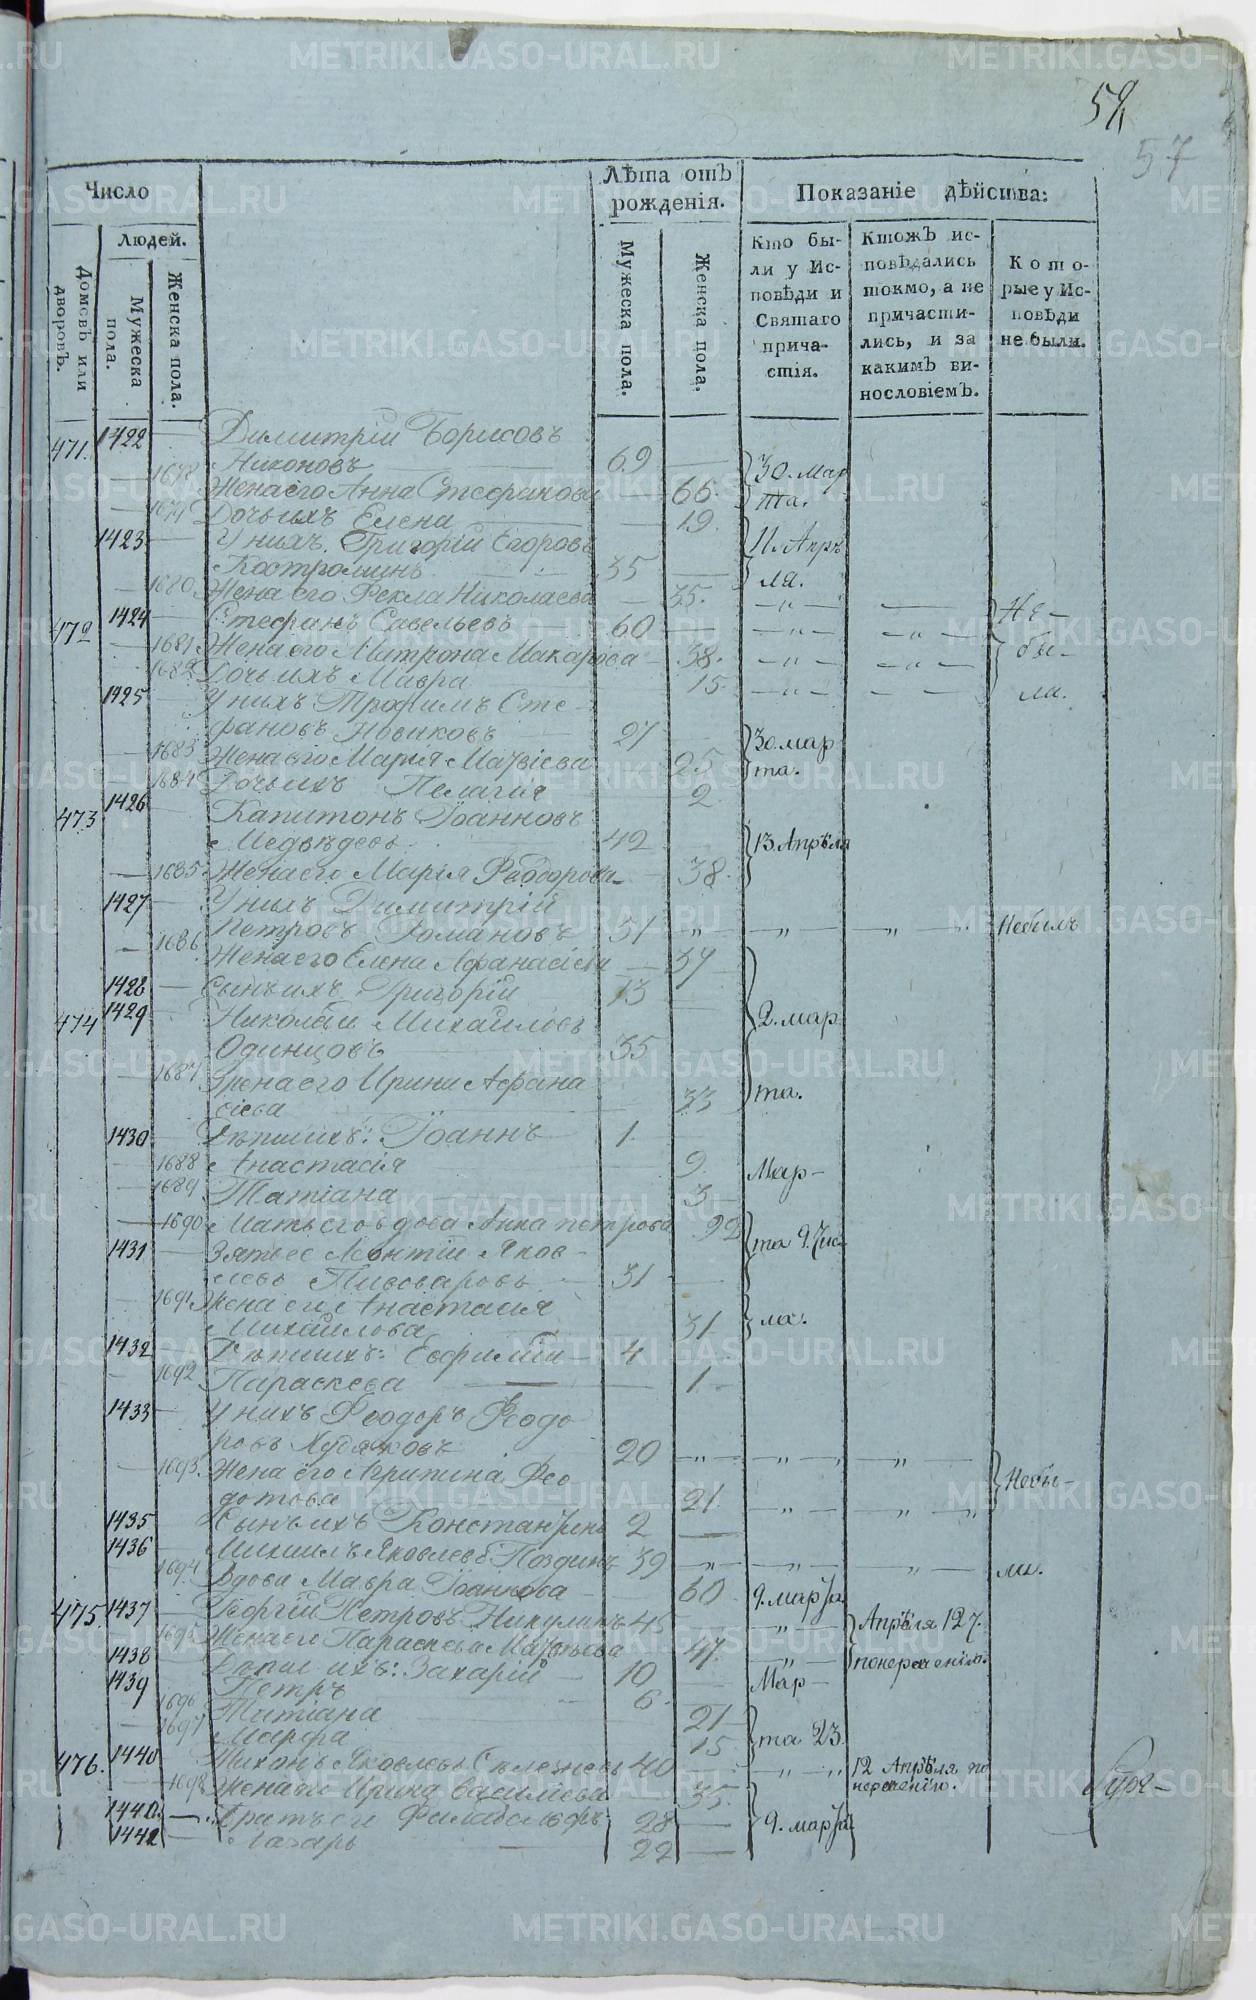 58
57
Число
Лѣта отъ рожденія.
Показаніе дѣйства:
Людей.
Домовъ или дворовъ.
Мужеска пола.
Женска пола.
Мужеска пола.
Женска пола.
Кто бы-
ли у Ис-
повѣди и
Святаго
прича-
стія.
Ктожъ ис-
повѣдались
токмо, а не
причасти-
лись, и за
какимъ ви-
нословіемъ.
Кото-
рые у Ис-
повѣди
не были.
471. 1422 Димитрій Борисовъ
Никоновъ 69 30. мар
1678 Жена его Анна Стефанова 66. та.
1679 Дочь ихъ Елена 19.
1423 У нихъ Григорій Егоровъ 11. Апрѣ
Костроминъ 35
1680 Жена его Фекла Николаева 35. ля.
472 1424 Стефанъ Савельевъ 60 Не-
1681 Жена его Матрона Макарова 38. бы-
1682 Дочь ихъ Мавра 15. ли.
1425 У нихъ Трофимъ Сте-
фановъ Новиковъ 27 30. мар
1683 Жена его Марія Матвіева 25 та.
1684 Дочь ихъ Пелагія 2
473 1426 Капитонъ Іоанновъ
Медвѣдевъ 42 13. Апрѣля
1685 Жена его Марія Феодорова 38.
1427 У нихъ Димитрій
Петровъ Романовъ 31 Небылъ
1686 Жена его Елена Афанасіева 37
1428 Сынъ ихъ Григорій 13
474 1429 Николай Михайловъ 2. мар
Одинцовъ 35
1687 Жена его Ирина Афана
сіева 33 та.
1430 Дѣти ихъ: Іоаннъ 1.
1688 Анастасія 9. Мар-
1689 Татіана 3
1690 Мать его вдова Анна Петрова 92 та 9. чис-
1431 Зять ее Леонтій Яков-
левъ Пивоваровъ 31
1691 Жена его Анастасія
Михайлова 31 ла.
1432 Дѣти ихъ: Евфимій 4
1692 Параскева 1.
1433 У нихъ Феодоръ Феодо
ровъ Худяковъ 20
1693. Жена его Агрипина Фео Небы-
дотова 21
1435 Сынъ ихъ Константинъ 2
1436 Михаилъ Яковлевъ Поздинъ 39 ли.
1694 Вдова Мавра Іоаннова 60 9. марта
475. 1437 Георгій Петровъ Никулинъ 45 Апрѣля 12 7.
1695 Жена его Параскева Матвѣева 47. понераченію.
1438 Дѣти ихъ: Захарій 10 Мар-
1439 Петръ 6
1696 Татіана 21
1697 Марфа 15 та 23.
476. 1440 Тихонъ Яковлевъ Селезневъ 40 12 Апрѣля по нераченію.
1698 Жена его Ирина Василіева 35.
1440. Братья его Филадельфъ 28 9. марта
1442 Лазарь 22